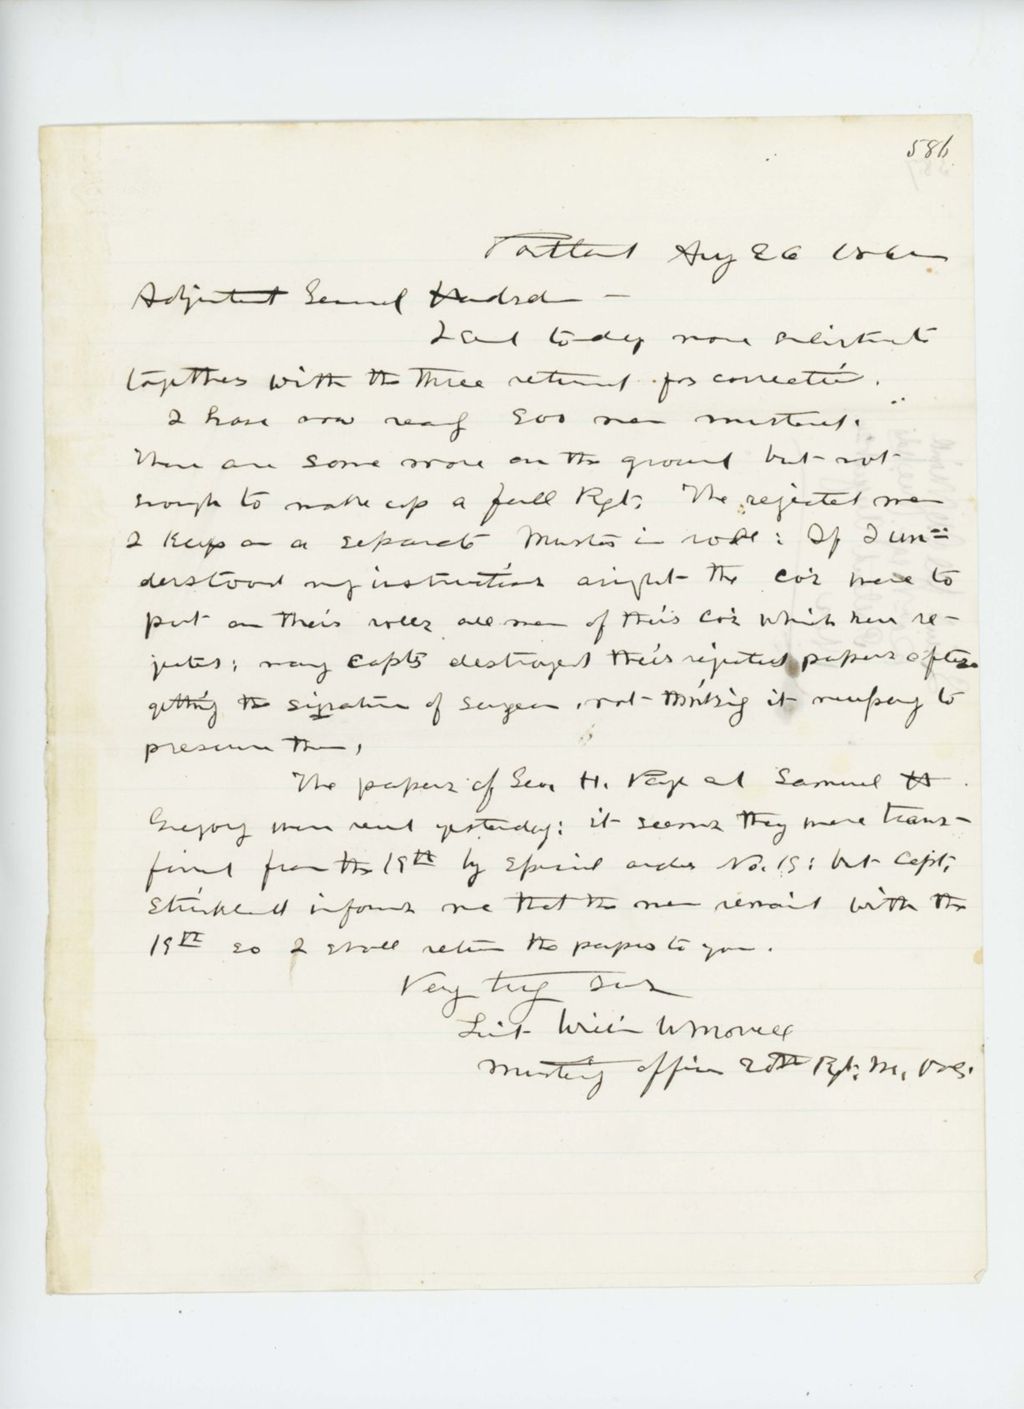 586
Portland Aug 26 1862
Adjutant General Hodsdon —
I send today more enlistments
together with the three returned for correction.
I have now nearly 900 men mustered.
There are some more on the ground but not
enough to make up a full Rgt. The rejected men
I keep on a separate Muster in roll: If I un=
derstood my instructions aright the Co's were to
put on their rolls all men of their Co's which were re-
jected; many Capts destroyed their rejected papers after
getting the signature of surgeon, not thinking it necessary to
preserve them.
The papers of Geo. H. Page and Samuel H.
Gregory were sent yesterday: it seems they were trans-
ferred from the 19th by Special order No. 15: but Capt.
Strickland informs me that the men remain with the
19th so I shall return the papers to you.
Very truly Yours
Lieut Will'm W Morrell
Mustering officer 20th Rgt. Me. Vols.